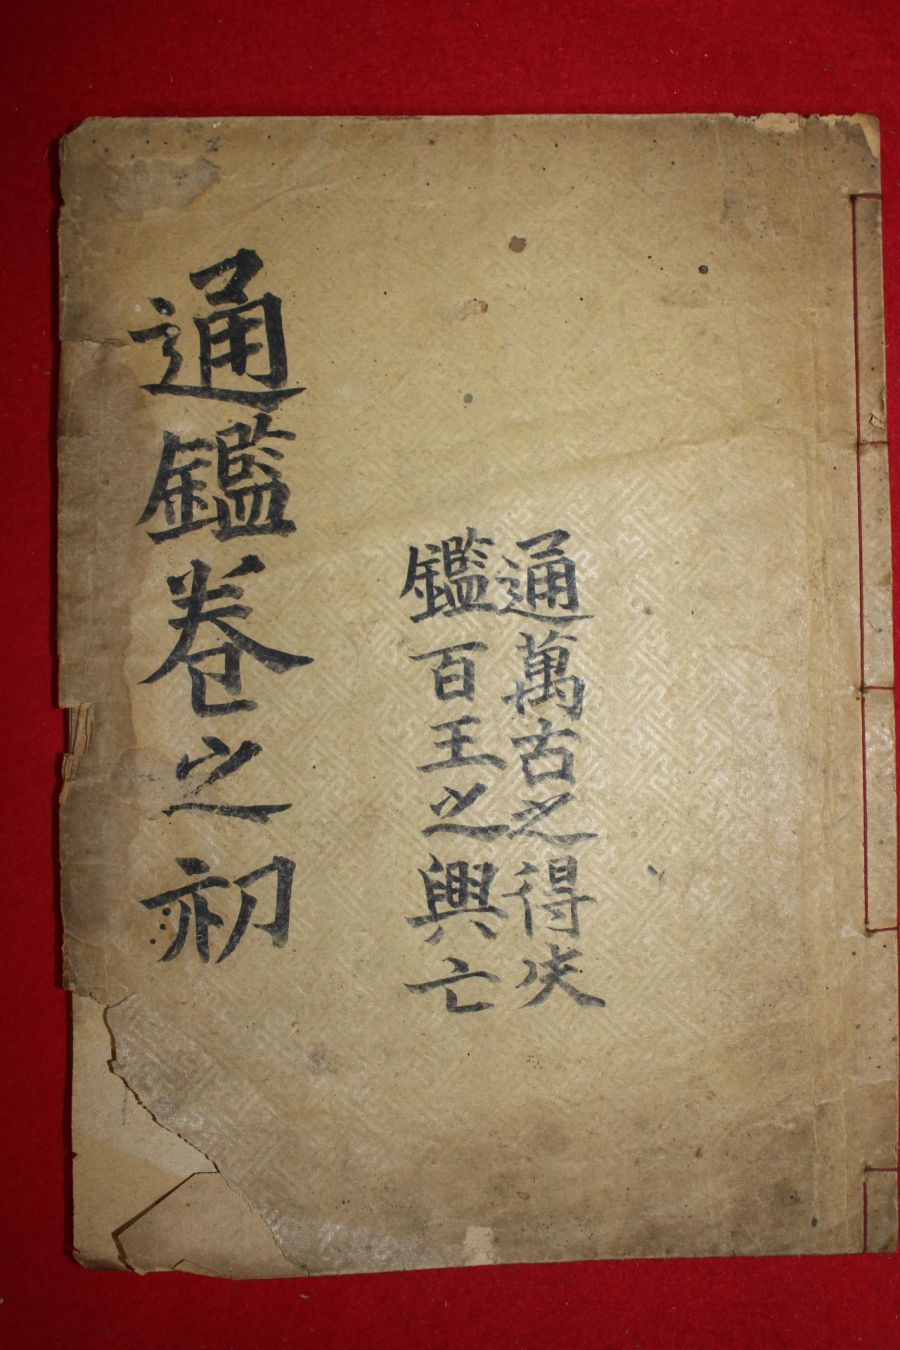 通萬古之得失
鑑百王之興亡
通鑑卷之初